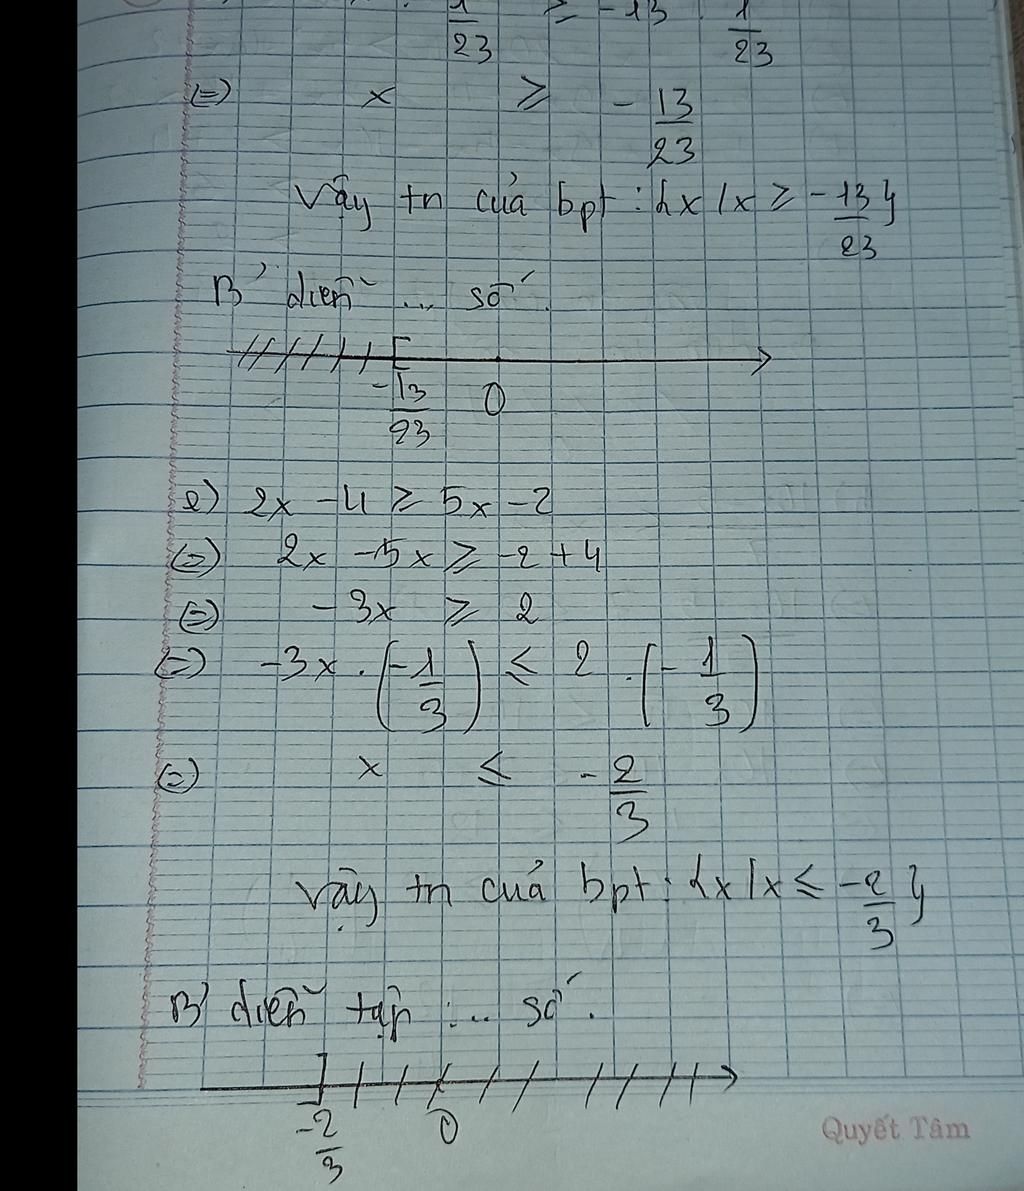 . 1/23 ≥ -13 . 1/23
(=) x ≥ - 13/23
Vậy tn của bpt : {x / x ≥ - 13/23}
B' diễn ... số.
-13/23 0
e) 2x - 4 ≥ 5x - 2
(=) 2x - 5x ≥ -2 + 4
(=) - 3x ≥ 2
(=) -3x . (-1/3) ≤ 2 . (-1/3)
(=) x ≤ - 2/3
Vậy tn cuả bpt : {x / x ≤ -2/3}
B' diễn tập ... số.
-2/3 0
Quyết Tâm